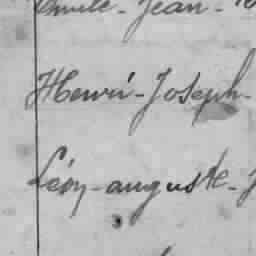 Jean-
Henri-Joseph-
Léon-auguste-